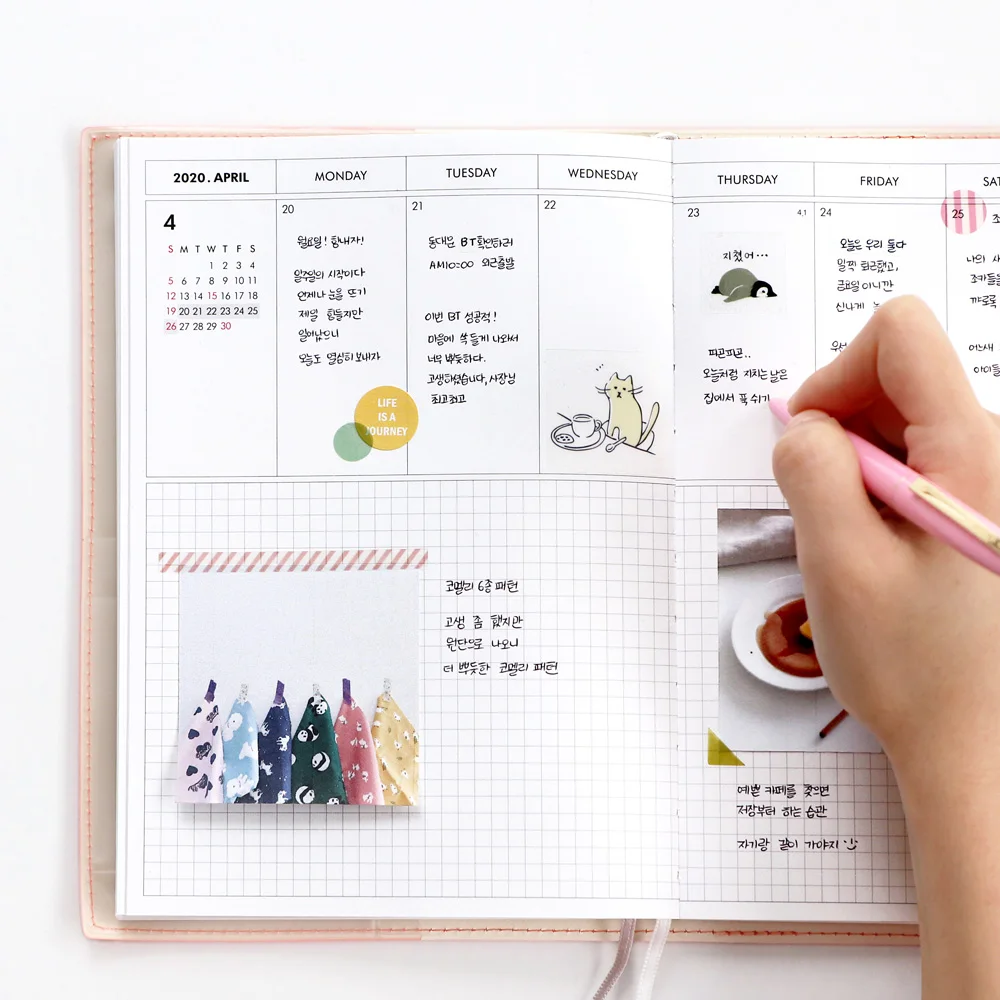 2020. APRIL
MONDAY
TUESDAY
WEDNESDAY
THURSDAY
FRIDAY
SAT
4
S M T W T F S
1 2 3 4
5 6 7 8 9 10 11
12 13 14 15 16 17 18
19 20 21 22 23 24 25
26 27 28 29 30
20
월요일! 힘내자!
일주일의 시작이다
언제나 눈을 뜨기
제일 힘들지만
일어났으니
오늘도 열심히 보내자
LIFE
IS A
JOURNEY
21
동대문 BT확인하러
AM10:00 외근출발
이번 BT 성공적!
마음에 쏙 들게 나와서
너무 뿌듯하다.
고생하셨습니다, 사장님
최고최고
22
23
4.1
지쳤어···
피곤피곤..
오늘처럼 지치는 날은
집에서 푹 쉬기
24
오늘은 우리 둘다
일찍 퇴근했고,
금요일이니깐
신나게
25
나의
조카들을
꺄르륵
어느새
코멜리 6종 패턴
고생 좀 했지만
원단으로 나오니
더 뿌듯한 코멜리 패턴
예쁜 카페를 찾으면
저장부터 하는 습관
자기랑 같이 가야지 :)